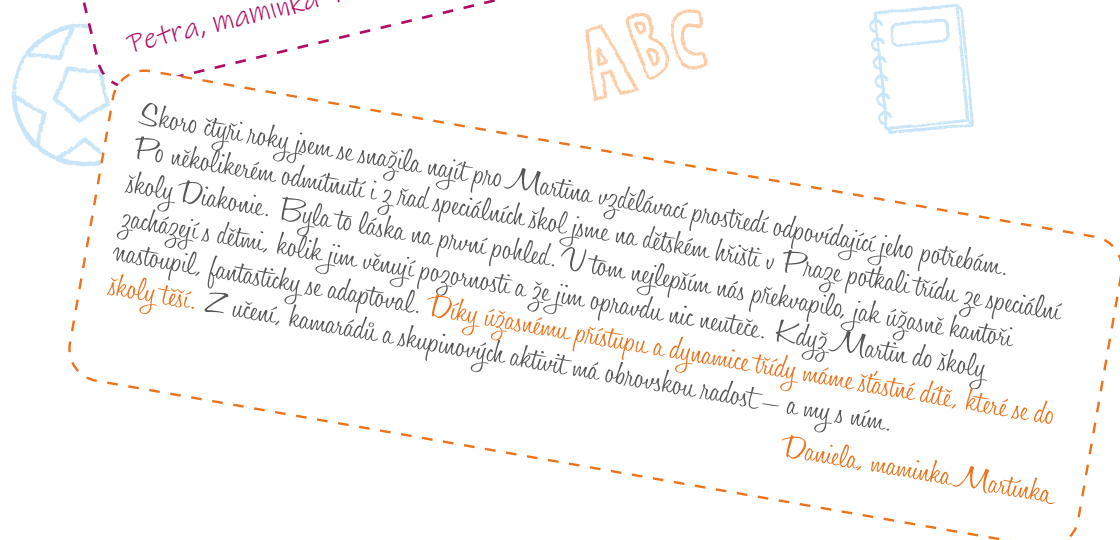 Petra, maminka
ABC
Skoro čtyři roky jsem se snažila najít pro Martina vzdělávací prostředí odpovídající jeho potřebám.
Po několikerém odmítnutí i z řad speciálních škol jsme na dětském hřišti v Praze potkali třídu ze speciální
školy Diakonie. Byla to láska na první pohled. V tom nejlepším nás překvapilo, jak úžasně kantoři
zacházejí s dětmi, kolik jim věnují pozornosti a že jim opravdu nic neuteče. Když Martin do školy
nastoupil, fantasticky se adaptoval. Díky úžasnému přístupu a dynamice třídy máme šťastné dítě, které se do
školy těší. Z učení, kamarádů a skupinových aktivit má obrovskou radost – a my s ním.
Daniela, maminka Martínka